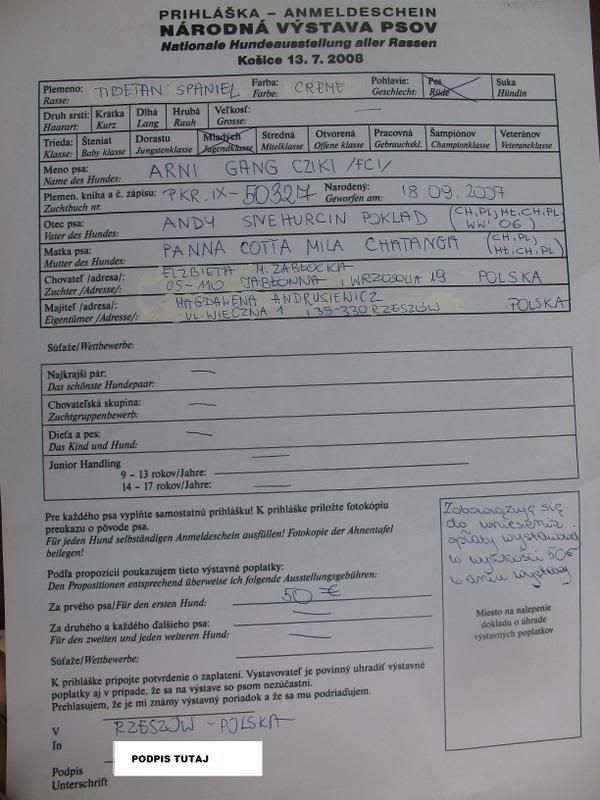 PRIHLÁŠKA – ANMELDESCHEIN
NÁRODNÁ VÝSTAVA PSOV
Nationale Hundeausstellung aller Rassen
Košice 13. 7. 2008
Plemeno: TIBETAN SPANIEL Farba: CREME Pohlavie: Pes Suka
Rasse: Farbe: Geschlecht: Rüde Hündin
Druh srsti: Krátka Dlhá Hrubá Veľkosť: —
Haarart: Kurz Lang Rauh Grosse:
Trieda: Šteniat Dorastu Mladých Stredná Otvorená Pracovná Šampiónov Veteránov
Klasse: Baby klasse Jungstenklasse Jugendklasse Mitelklasse Offene klasse Gebrauchskl. Championklasse Veteraneklasse
Meno psa: ARNI GANG CZIKI /FCI/
Name des Hundes:
Plemen. kniha a č. zápisu: PKR.IX-50327 Narodený: 18.09.2007
Zuchtbuch nr. Geworfen am:
Otec psa: ANDY SNEHURCIN POKLAD (CH,PL, Mł,CH,PL,
Vater des Hundes: WW' 06)
Matka psa: PANNA COTTA MILA CHATANGA (CH,PL)
Mutter des Hundes: Mł,CH,PL)
Chovateľ /adresa/: ELŻBIETA M. ZABŁOCKA
Zuchter /Adresse/: 05-110 JABŁONNA, WRZOSOWA 19 POLSKA
Majiteľ /adresa/: MAGDALENA ANDRUSIEWICZ
Eigentümer /Adresse/: UL. WIECZNA 1, 35-330 RZESZÓW POLSKA
Súťaže/Wettbewerbe:
Najkrajší pár: —
Das schönste Hundepaar:
Chovateľská skupina: —
Zuchtgruppenbewerb:
Dieťa a pes: —
Das Kind und Hund:
Junior Handling —
9 – 13 rokov/Jahre:
14 – 17 rokov/Jahre: —
Pre každého psa vyplňte samostatnú prihlášku! K prihláške priložte fotokópiu
preukazu o pôvode psa.
Für jeden Hund selbständigen Anmeldeschein ausfüllen! Fotokopie der Ahnentafel
beilegen!
Podľa propozícií poukazujem tieto výstavné poplatky:
Den Propositionen entsprechend überweise ich folgende Ausstellungsgebühren:
Za prvého psa/Für den ersten Hund: 50 €
Za druhého a každého ďalšieho psa: —
Für den zweiten und jeden weiteren Hund: —
Súťaže/Wettbewerbe:
K prihláške pripojte potvrdenie o zaplatení. Vystavovateľ je povinný uhradiť výstavné
poplatky aj v prípade, že sa na výstave so psom nezúčastní.
Prehlasujem, že je mi známy výstavný poriadok a že sa mu podriaďujem.
V RZESZÓW - POLSKA
In
Podpis PODPIS TUTAJ
Unterschrift
Zobowiązuję się
do wniesienia
opłaty wystawowej
w wysokości 50€
w dniu wystawy
Miesto na nalepenie
dokladu o úhrade
výstavných poplatkov